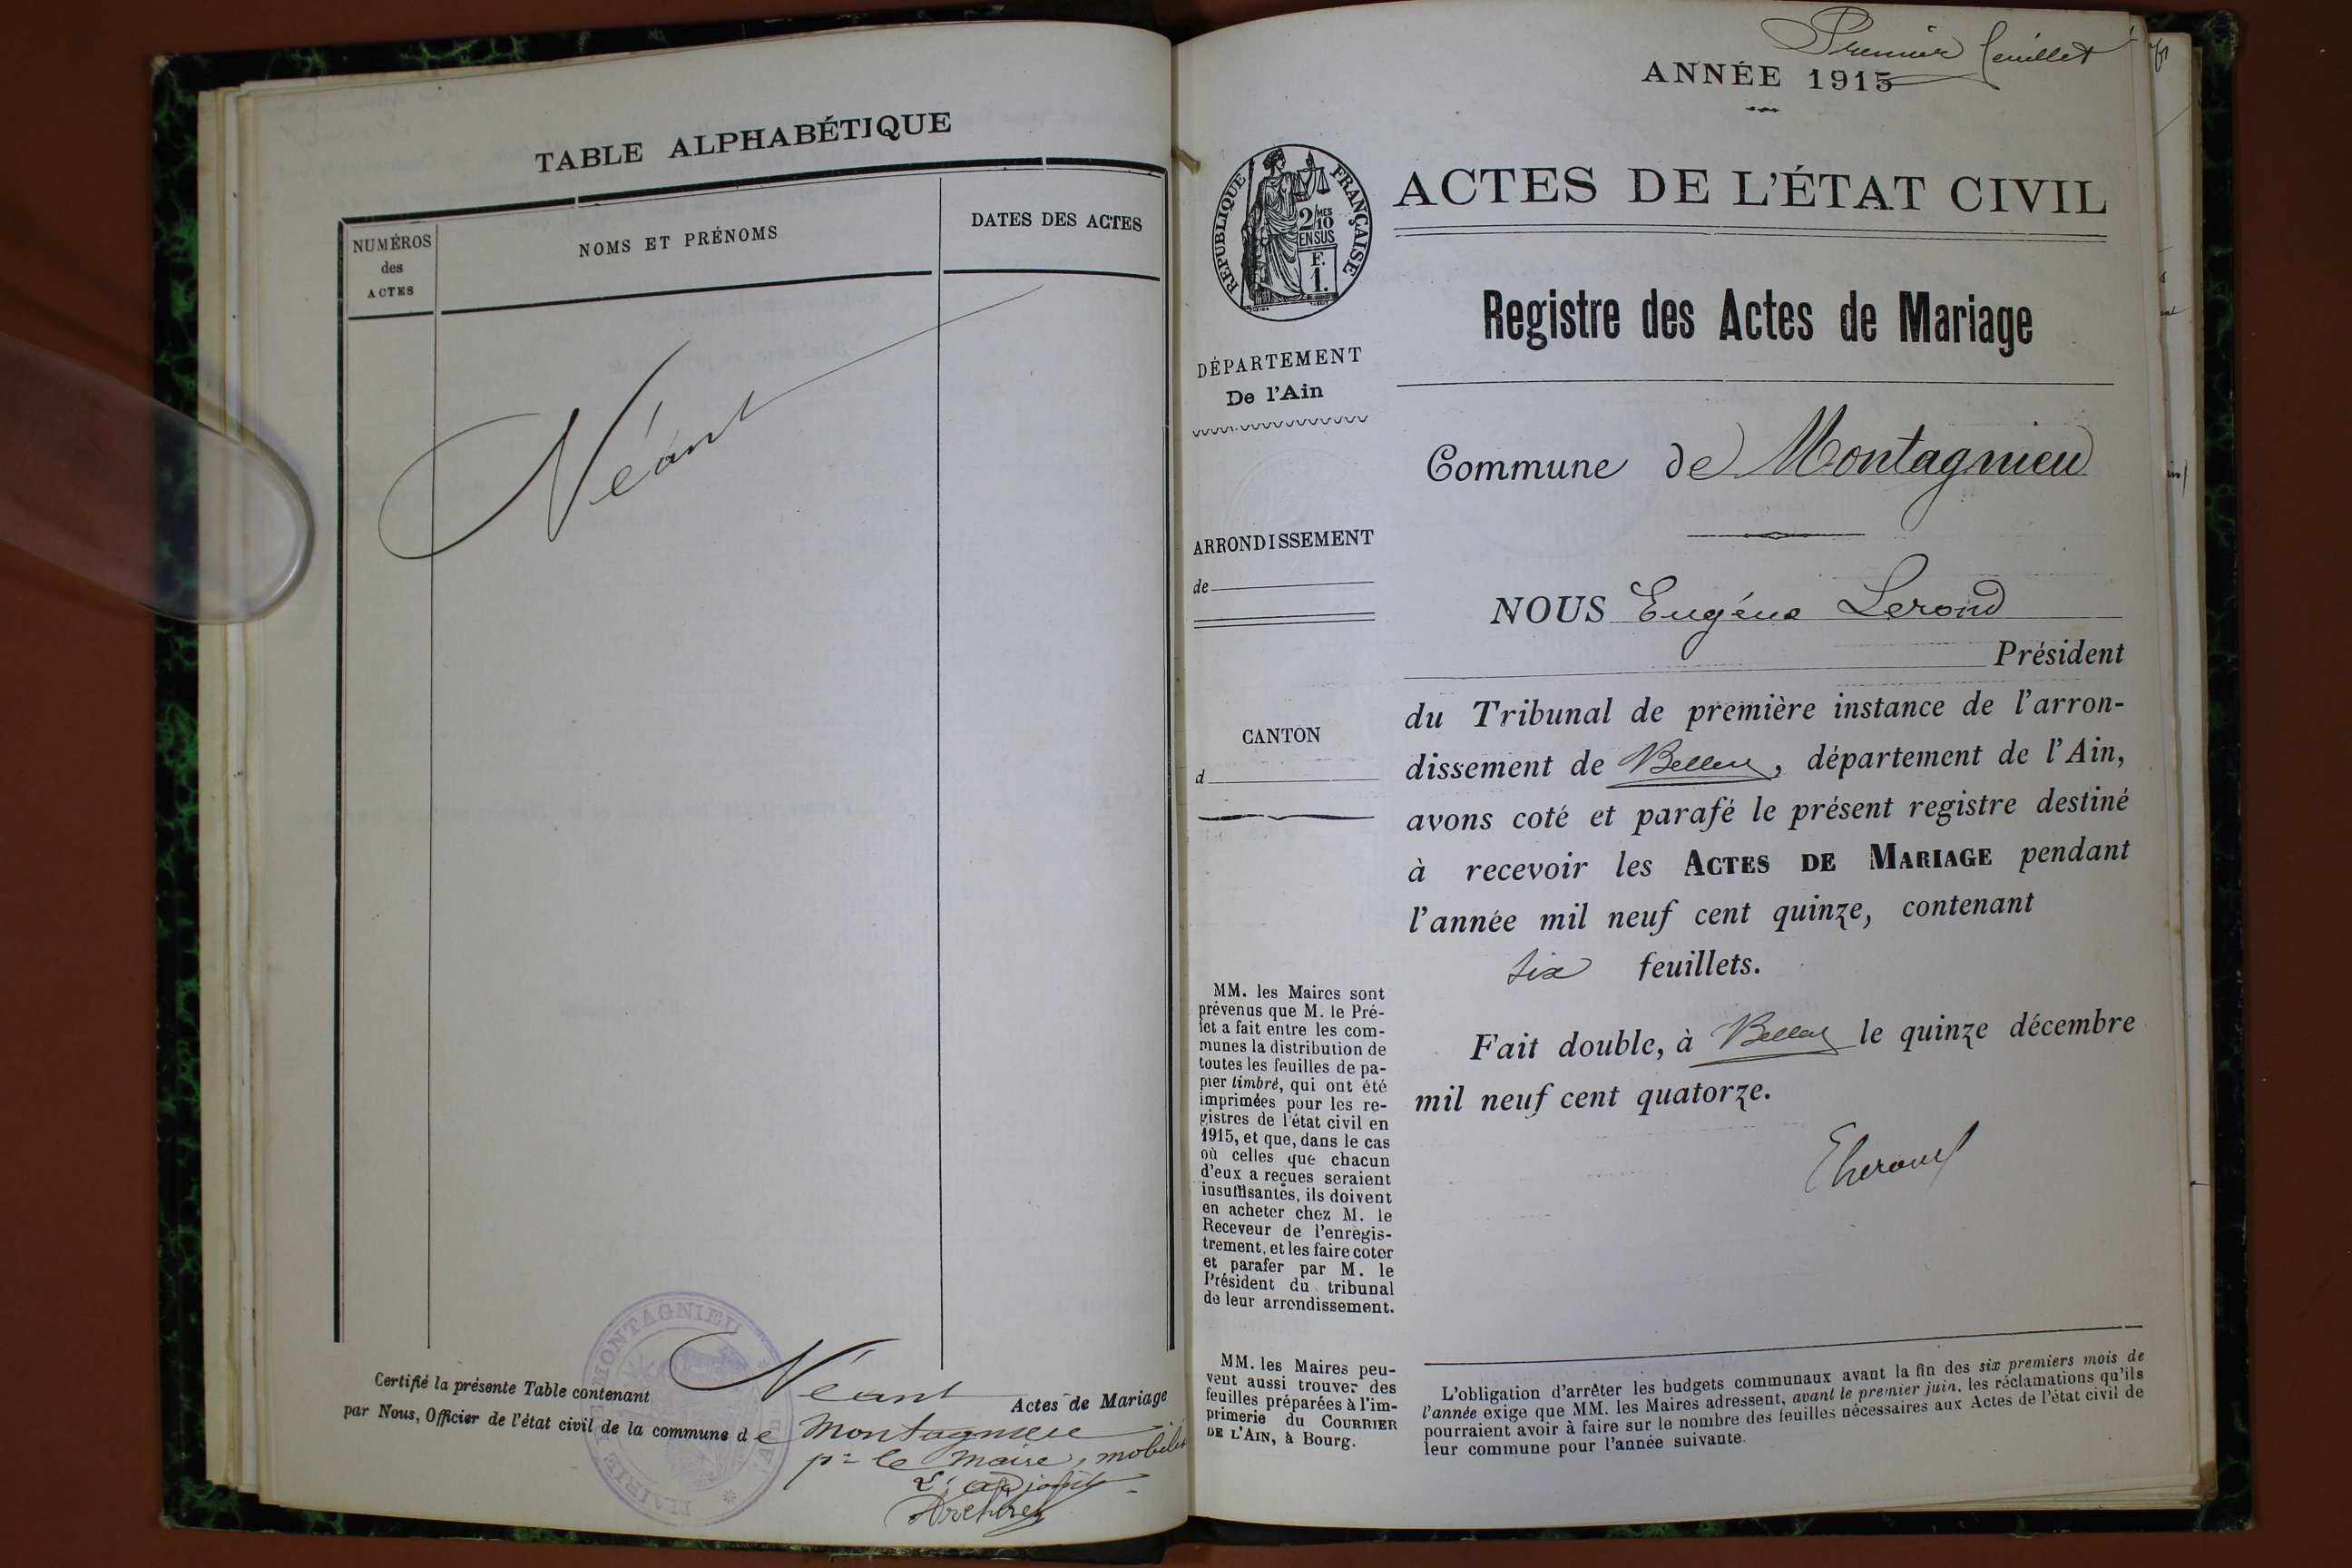 TABLE ALPHABÉTIQUE
NUMÉROS
des
ACTES
NOMS ET PRÉNOMS
DATES DES ACTES
Néant
MAIRIE DE MONTAGNIEU
Certifié la présente Table contenant Néant Actes de Mariage
par Nous, Officier de l'état civil de la commune de Montagnieu
pr le Maire, mobilisé
L'adjoint
Premier feuillet
ANNÉE 1915
RÉPUBLIQUE FRANÇAISE
2/10
MES
EN SUS
F.
1.
ACTES DE L'ÉTAT CIVIL
Registre des Actes de Mariage
DÉPARTEMENT
De l'Ain
Commune de Montagnieu
ARRONDISSEMENT
de
NOUS Eugène Lerond
Président
du Tribunal de première instance de l'arron-
dissement de Belley, département de l'Ain,
avons coté et parafé le présent registre destiné
à recevoir les ACTES DE MARIAGE pendant
l'année mil neuf cent quinze, contenant
six feuillets.
Fait double, à Belley le quinze décembre
mil neuf cent quatorze.
CANTON
d
MM. les Maires sont
prévenus que M. le Pré-
fet a fait entre les com-
munes la distribution de
toutes les feuilles de pa-
pier timbré, qui ont été
imprimées pour les re-
gistres de l'état civil en
1915, et que, dans le cas
où celles que chacun
d'eux a reçues seraient
insuffisantes, ils doivent
en acheter chez M. le
Receveur de l'enregis-
trement, et les faire coter
et parafer par M. le
Président du tribunal
de leur arrondissement.
MM. les Maires peu-
vent aussi trouver des
feuilles préparées à l'im-
primerie du COURRIER
DE L'AIN, à Bourg.
L'obligation d'arrêter les budgets communaux avant la fin des six premiers mois de
l'année exige que MM. les Maires adressent, avant le premier juin, les réclamations qu'ils
pourraient avoir à faire sur le nombre des feuilles nécessaires aux Actes de l'état civil de
leur commune pour l'année suivante.